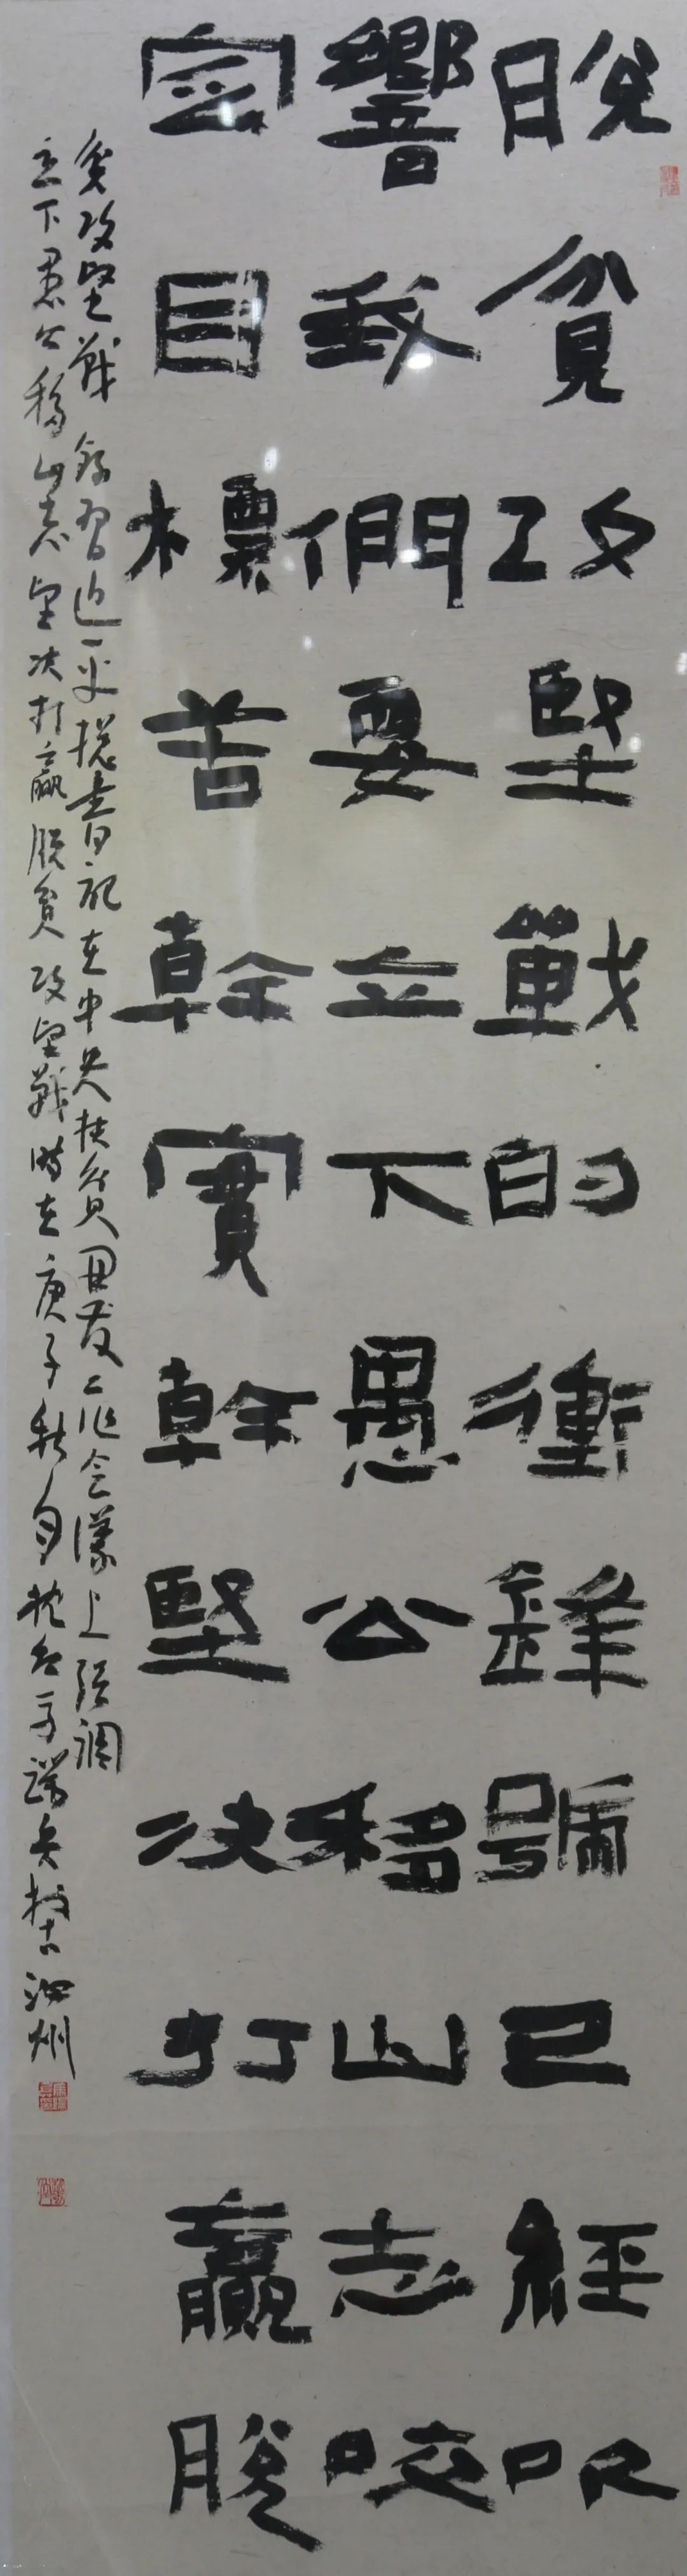 脫貧攻堅戰的衝鋒號已經吹
響我們要立下愚公移山志咬
定目標苦幹實幹堅决打贏脫
貧攻堅戰 錄習近平總書記在中央扶貧開發工作會議上強調
立下愚公移山志堅决打贏脫貧攻堅戰時在庚子秋月 泗州